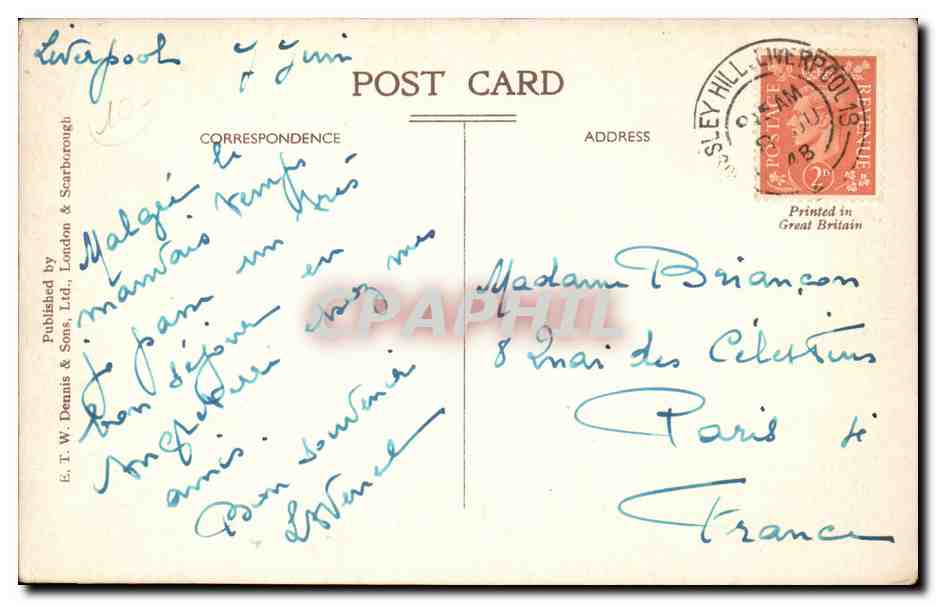 Liverpool 7 Juin
POST CARD
CORRESPONDENCE
ADDRESS
MOSSLEY HILL. LIVERPOOL 19
9 15 AM
8 JU
48
POSTAGE REVENUE
2D
Printed in
Great Britain
10-
Published by
E. T. W. Dennis & Sons, Ltd., London & Scarborough
Malgré le
mauvais temps
je passe un très
bon séjour en
Angleterre chez mes
amis
Bon souvenir
Madame Briançon
8 Quai des Célestins
Paris 4e
France
CPAPHIL